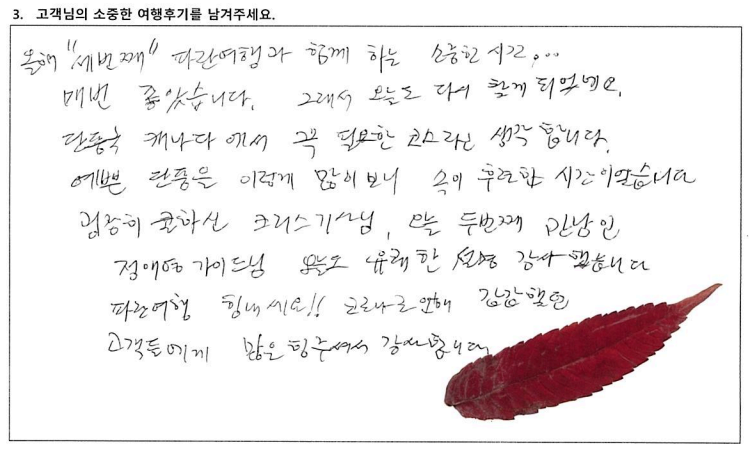 3. 고객님의 소중한 여행후기를 남겨주세요.
올해 "세번째" 파란여행과 함께 하는 소중한 시간...
매번 좋았습니다. 그래서 오늘도 다시 함께 되었네요.
단풍국 캐나다에서 꼭 필요한 코스라고 생각합니다.
예쁜 단풍을 이렇게 많이 보니 속이 후련한 시간이었습니다
굉장히 쿨하신 크리스기사님, 오늘 두번째 만남인
정애영 가이드님 오늘도 유쾌한 설명 감사했습니다
파란여행 힘내세요!! 코로나로 인해 갑갑했던
고객들에게 많은 힘주셔서 감사합니다.